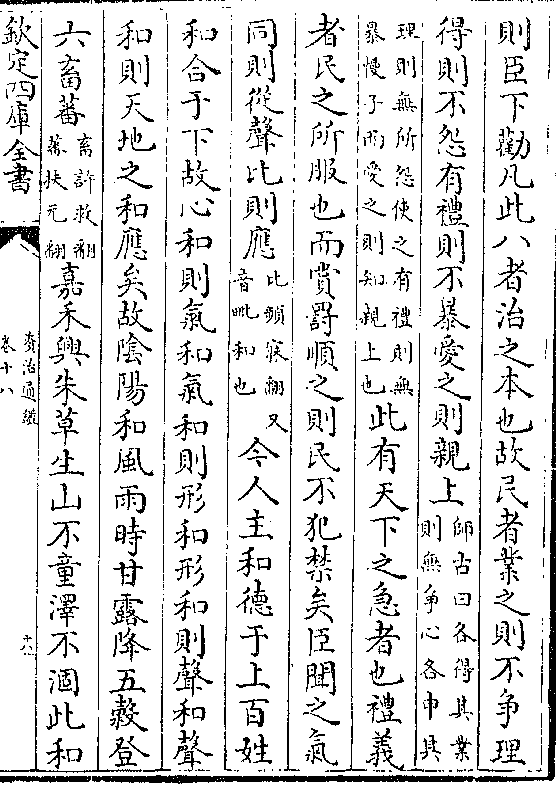 則臣下勸凡此八者治之本也故民者業之則不爭理
得則不怨有禮則不暴愛之則親上師古曰各得其業則無爭心各申其
理則無所怨使之有禮則無暴慢子而愛之則知親上也此有天下之急者也禮義
者民之所服也而賞罰順之則民不犯禁矣臣聞之氣
同則從聲比則應比頻寐翻又音毗和也今人主和德于上百姓
和合于下故心和則氣和氣和則形和形和則聲和聲
和則天地之和應矣故陰陽和風雨時甘露降五穀登
六畜蕃畜許救翻蕃扶元翻嘉禾興朱草生山不童澤不涸此和
欽定四庫全書
資治通鑑
卷十八
十八